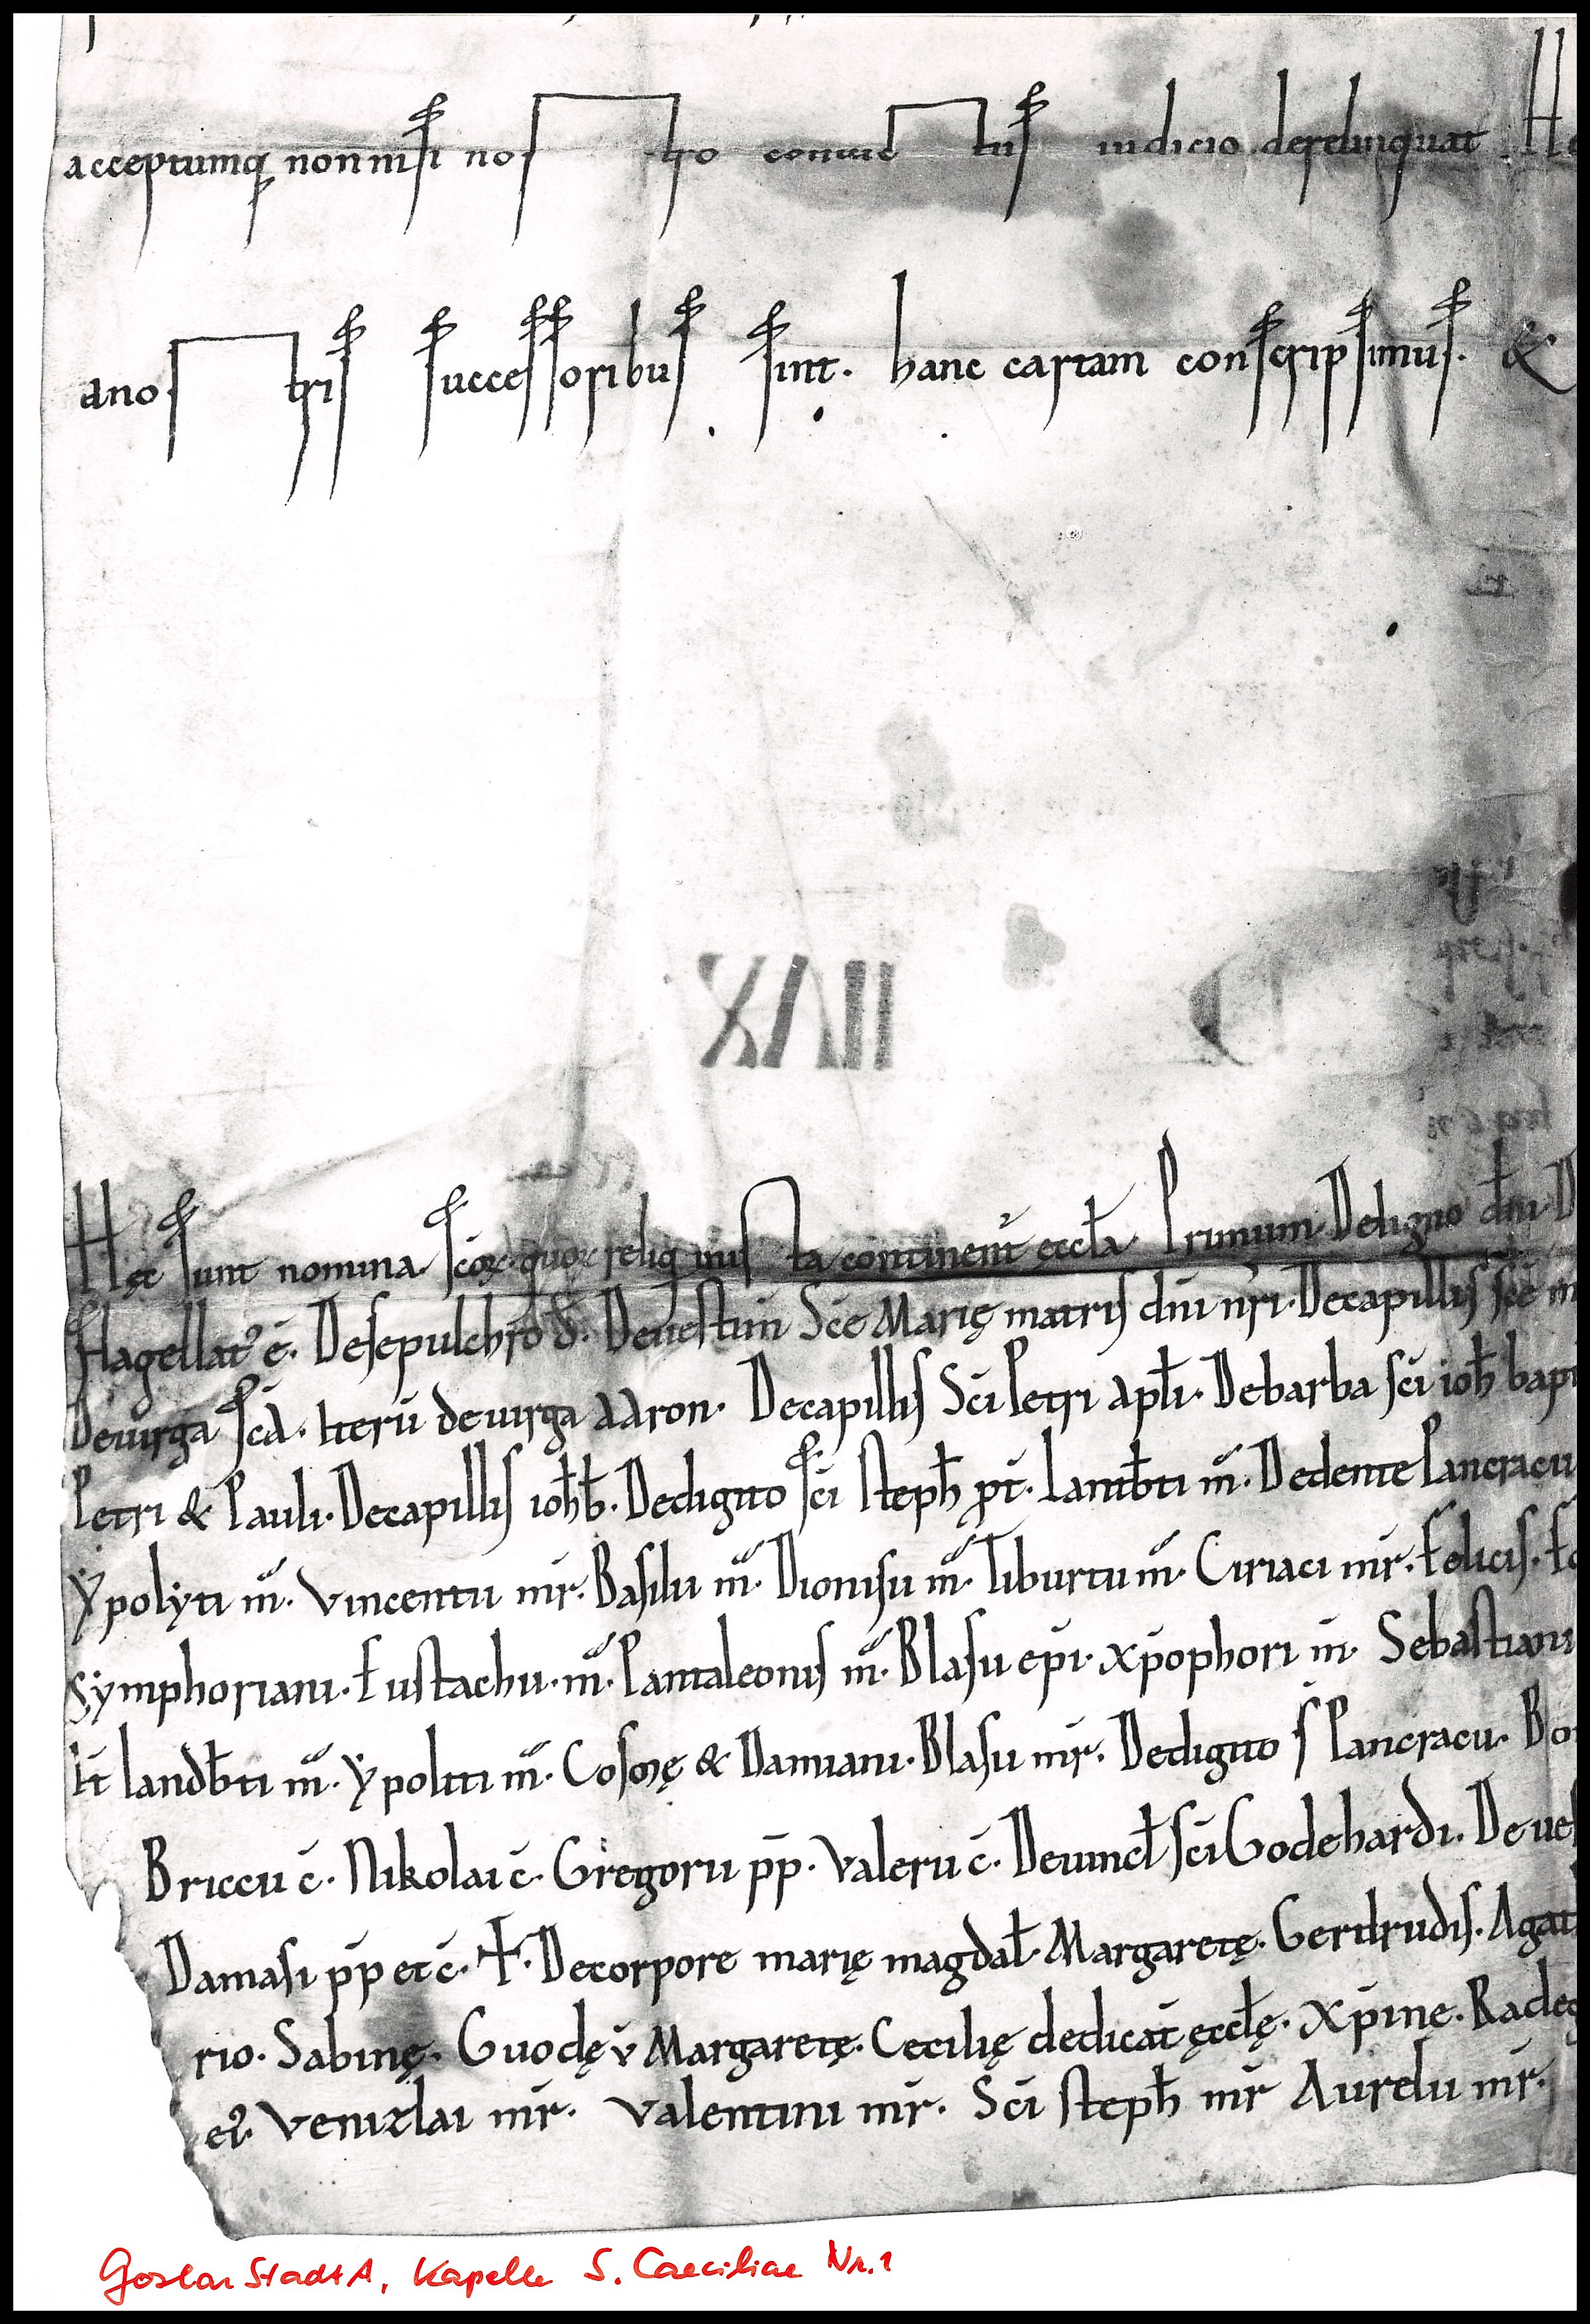 acceptumq; non nisi nostro conuictus iudicio derelinquat He
a nostris successoribus sint. hanc cartam conscripsimus. &
XVII
Hęc sunt nomina scoꝝ. quoꝝ reliq in ista continent̄ eccła Primum De ligno dn̄i D
flagellat᷒ ē. De sepulchro d̄. De uestim̄ Sce Marię matris dn̄i nr̄i. De capillis sce m
De uirga scA. Iterū de uirga AAron. De capillis Sci Petri apłi. De barba sci ioh̄ bapt
Petri & Pauli. De capillis ioh̄ b̄. De digito sci steph̄ p̄t. Lamb̄ti m̄. De dente Pancracii
Ypolyti m̄. Vincentii mr̄. Basilii m̄. Dionisii m̄. Tiburtii m̄. Ciriaci mr̄. Felicis. Fe
Symphoriani. Eustachii. m̄. Pantaleonis m̄. Blasii epi. xp̄ophori m̄. Sebastiani
It̄ landb̄ti m̄. Ypoliti m̄. Cosmę & Damiani. Blasii mr̄. De digito s̄ Pancracii. Bo
Briccii c̄. Nikolai c̄. Gregorii pp̄. Valerii c̄. De uincł sci Godehardi. De ues
Damasi pp̄ et c̄. ✝. De corpore marię magdał. Margaretę. Gertrudis. Agat
rio. Sabinę. Guodę v̄ Margaretę. Cecilię dedicat̄ ęccłę. xp̄ine. Radeg
ei᷒. Venizlai mr̄. Valentini mr̄. Sci steph̄ mr̄ Aurelii mr̄.
Goslar StadtA, Kapelle S. Caeciliae Nr. 1